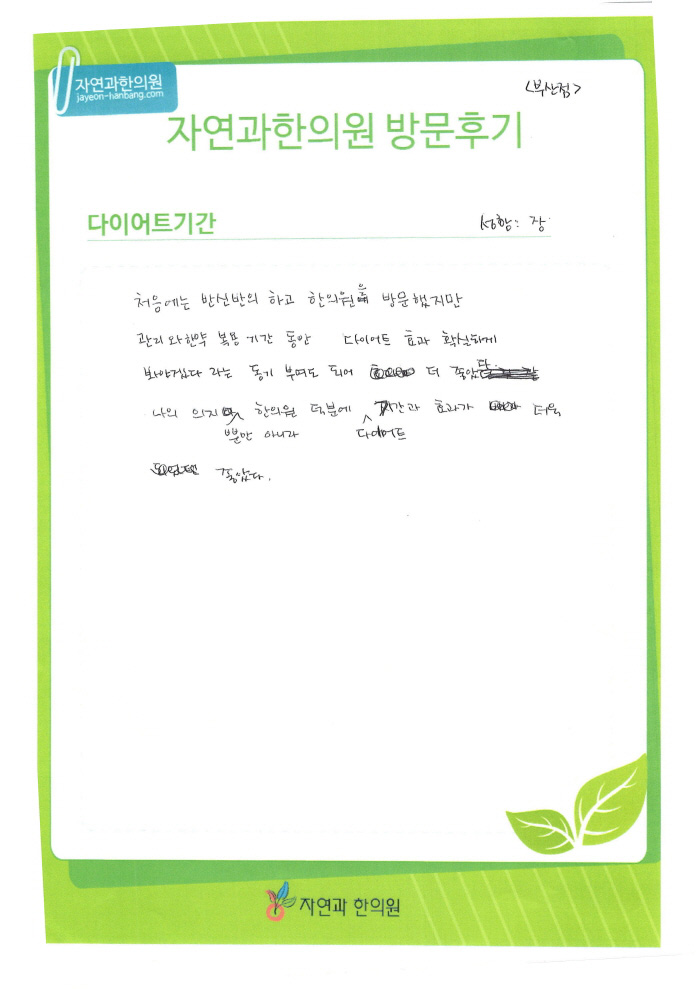 자연과한의원
jayeon-hanbang.com
<부산점>
자연과한의원 방문후기
다이어트기간
성함: 장
처음에는 반신반의 하고 한의원을 방문했지만
관리와 한약 복용 기간 동안 다이어트 효과 확실하게
봐야겠다 라는 동기 부여도 되어 더 좋았다.
나의 의지 뿐만 아니라 한의원 덕분에 다이어트 기간과 효과가 더욱
좋았다.
자연과 한의원